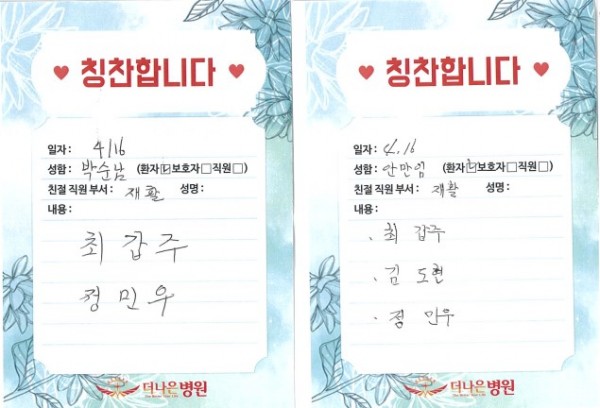 칭찬합니다
일자 : 4/16
성함 : 박순남 (환자☑보호자☐직원☐)
친절 직원 부서 : 재활 성명 :
내용 :
최 갑 주
정 민 우
더나은병원
칭찬합니다
일자 : 4.16
성함 : 안만임 (환자☑보호자☐직원☐)
친절 직원 부서 : 재활 성명 :
내용 :
. 최 갑주
. 김 도현
. 정 민우
더나은병원